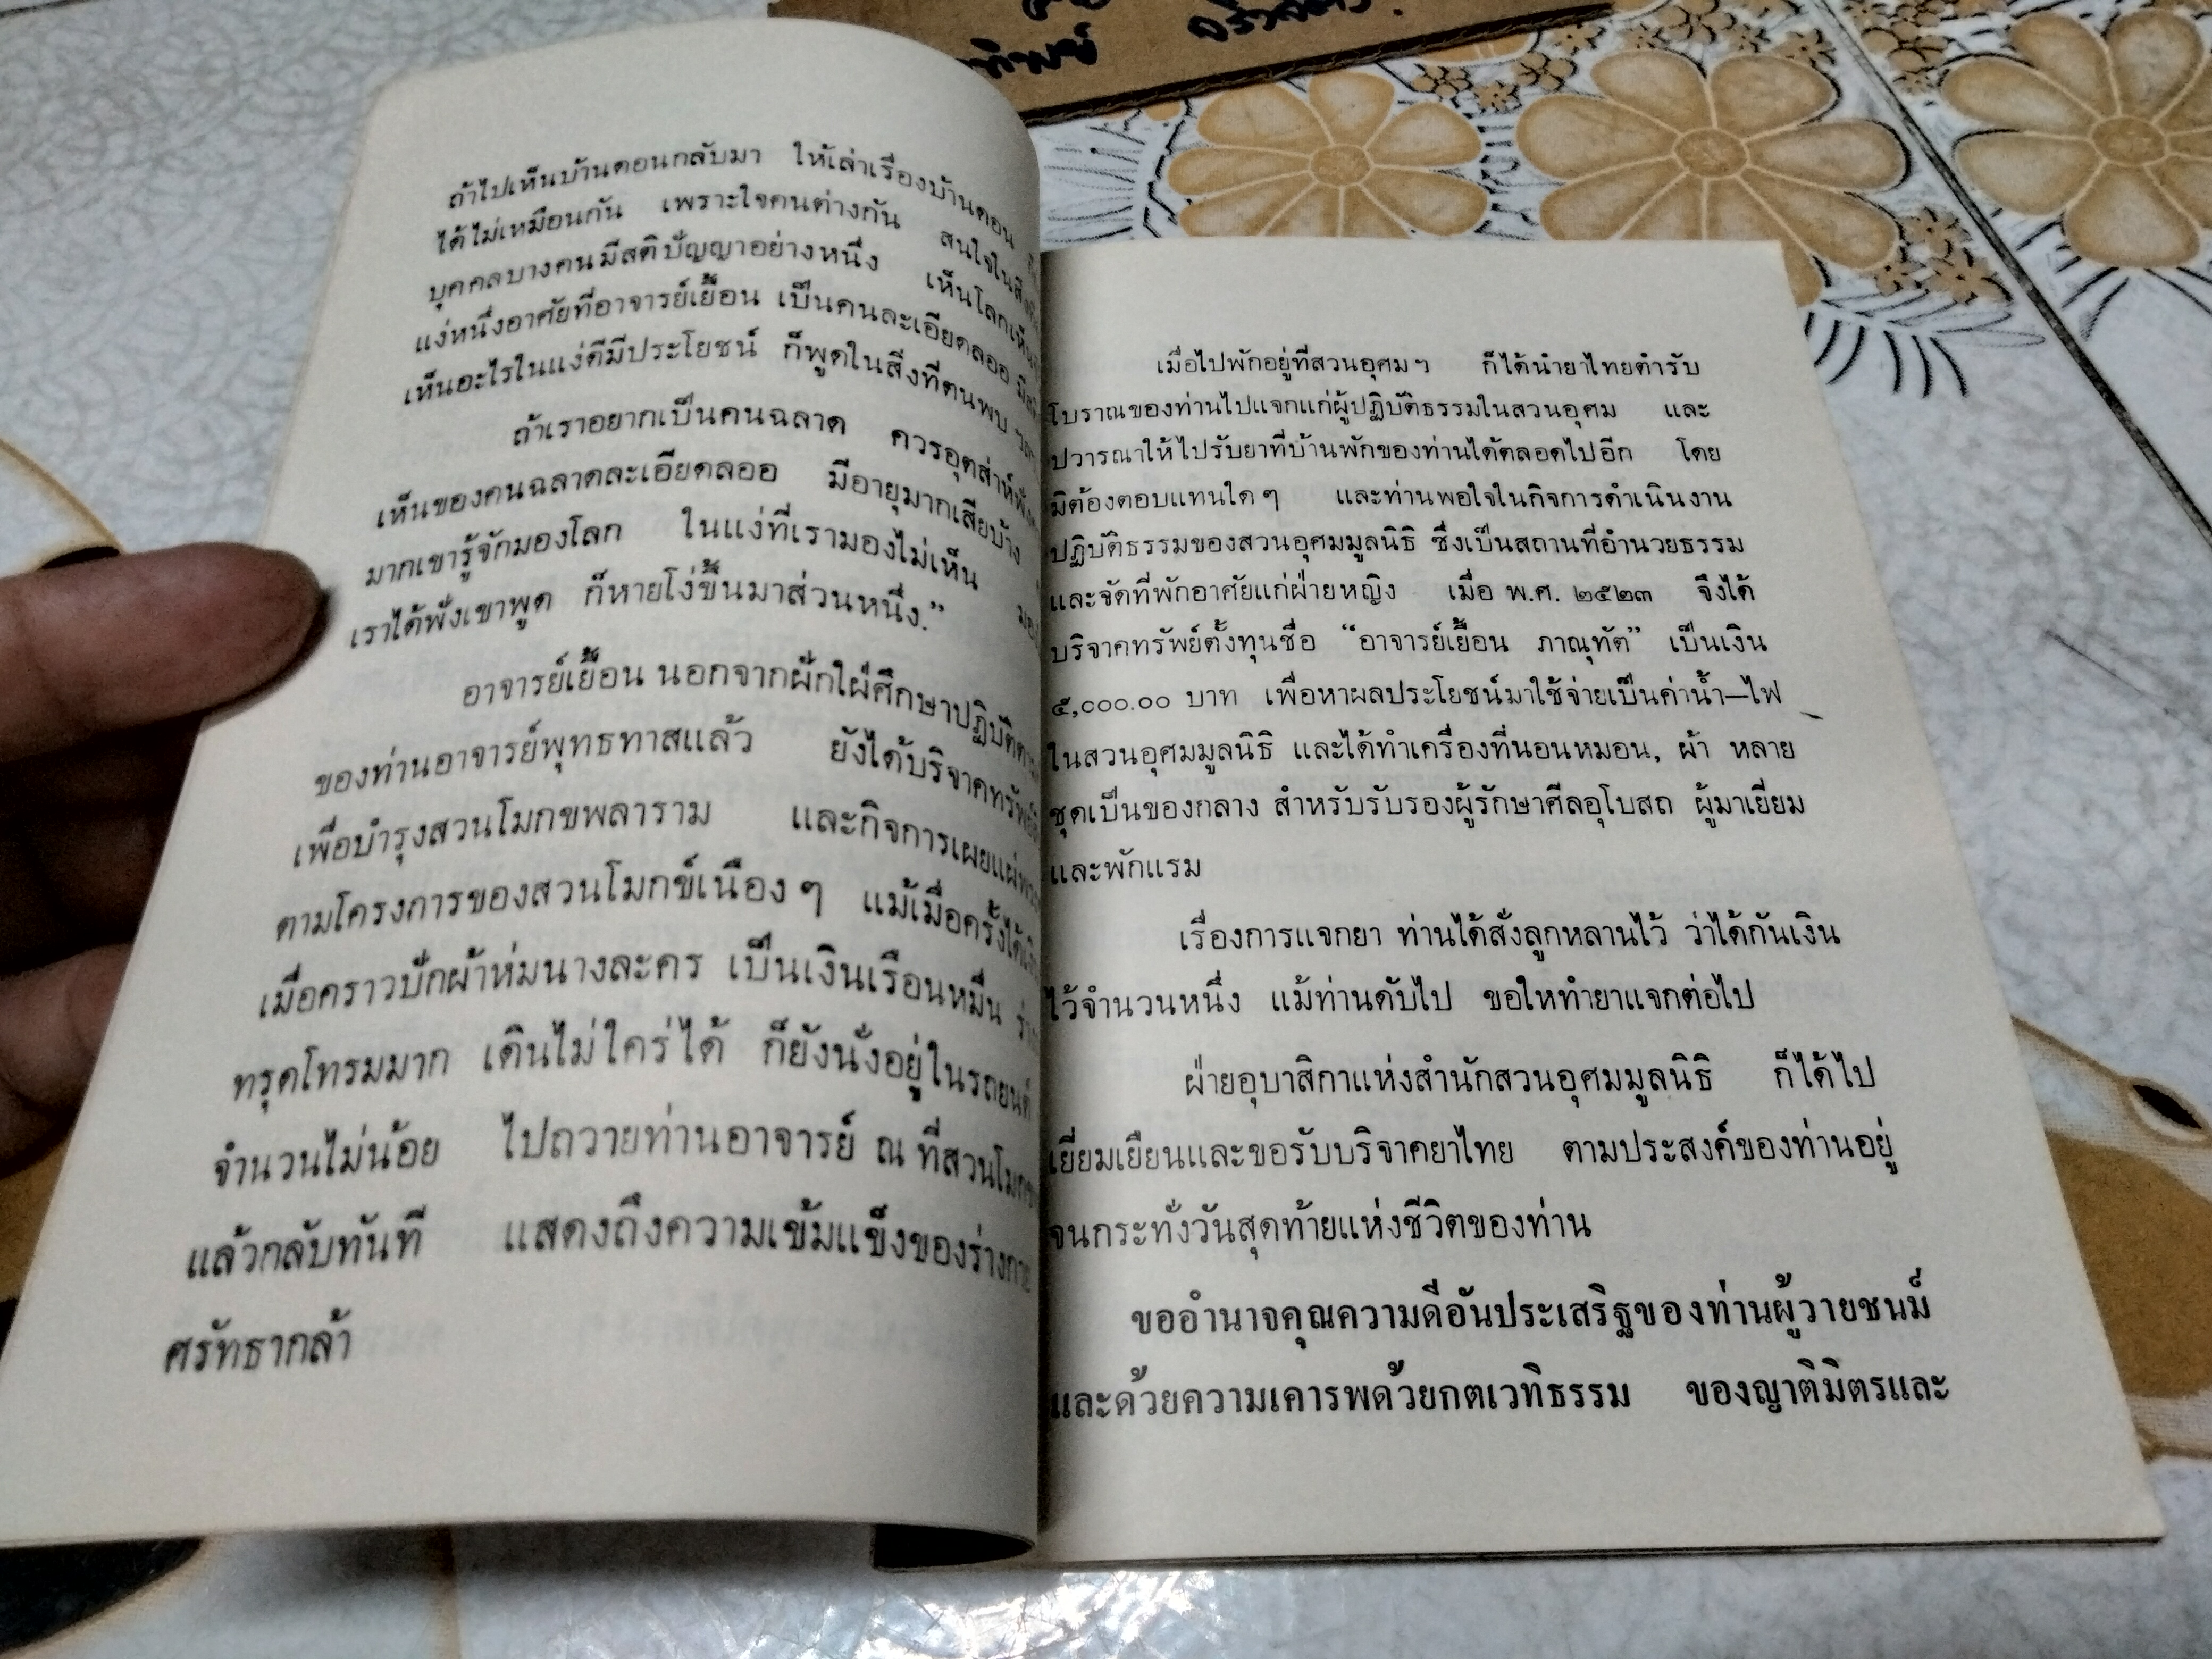 ถ้าไปเห็นบ้านดอนกลับมา ให้เล่าเรื่องบ้านดอน
ได้ไม่เหมือนกัน เพราะใจคนต่างกัน สนใจในสิ่ง
บุคคลบางคนมีสติปัญญาอย่างหนึ่ง เห็นโลกเห็น
แง่หนึ่งอาศัยที่อาจารย์เยื้อน เป็นคนละเอียดลออ
เห็นอะไรในแง่ดีมีประโยชน์ ก็พูดในสิ่งที่ตนพบ
ถ้าเราอยากเป็นคนฉลาด ควรอุตส่าห์ฟัง
เห็นของคนฉลาดละเอียดลออ มีอายุมากเสียบ้าง
มากเขารู้จักมองโลก ในแง่ที่เรามองไม่เห็น
เราได้ฟังเขาพูด ก็หายโง่ขึ้นมาส่วนหนึ่ง.”
อาจารย์เยื้อน นอกจากฝักใฝ่ศึกษาปฏิบัติ
ของท่านอาจารย์พุทธทาสแล้ว ยังได้บริจาคทรัพย์
เพื่อบำรุงสวนโมกขพลาราม และกิจการเผยแผ่
ตามโครงการของสวนโมกข์เนือง ๆ แม้เมื่อครั้งได้
เมื่อคราวปักผ้าห่มนางละคร เป็นเงินเรือนหมื่น
ทรุดโทรมมาก เดินไม่ใคร่ได้ ก็ยังนั่งอยู่ในรถยนต์
จำนวนไม่น้อย ไปถวายท่านอาจารย์ ณ ที่สวนโมกข
แล้วกลับทันที แสดงถึงความเข้มแข็งของร่างกาย
ศรัทธากล้า
เมื่อไปพักอยู่ที่สวนอุศม ๆ ก็ได้นำยาไทยตำรับ
โบราณของท่านไปแจกแก่ผู้ปฏิบัติธรรมในสวนอุศม และ
ปวารณาให้ไปรับยาที่บ้านพักของท่านได้ตลอดไปอีก โดย
มิต้องตอบแทนใด ๆ และท่านพอใจในกิจการดำเนินงาน
ปฏิบัติธรรมของสวนอุศมมูลนิธิ ซึ่งเป็นสถานที่อำนวยธรรม
และจัดที่พักอาศัยแก่ฝ่ายหญิง เมื่อ พ.ศ. ๒๕๒๓ จึงได้
บริจาคทรัพย์ตั้งทุนชื่อ “อาจารย์เยื้อน ภาณุทัต” เป็นเงิน
๕,๐๐๐.๐๐ บาท เพื่อหาผลประโยชน์มาใช้จ่ายเป็นค่าน้ำ–ไฟ
ในสวนอุศมมูลนิธิ และได้ทำเครื่องที่นอนหมอน, ผ้า หลาย
ชุดเป็นของกลาง สำหรับรับรองผู้รักษาศีลอุโบสถ ผู้มาเยี่ยม
และพักแรม
เรื่องการแจกยา ท่านได้สั่งลูกหลานไว้ ว่าได้กันเงิน
ไว้จำนวนหนึ่ง แม้ท่านดับไป ขอให้ทำยาแจกต่อไป
ฝ่ายอุบาสิกาแห่งสำนักสวนอุศมมูลนิธิ ก็ได้ไป
เยี่ยมเยียนและขอรับบริจาคยาไทย ตามประสงค์ของท่านอยู่
จนกระทั่งวันสุดท้ายแห่งชีวิตของท่าน
ขออำนาจคุณความดีอันประเสริฐของท่านผู้วายชนม์
และด้วยความเคารพด้วยกตเวทิธรรม ของญาติมิตรและ